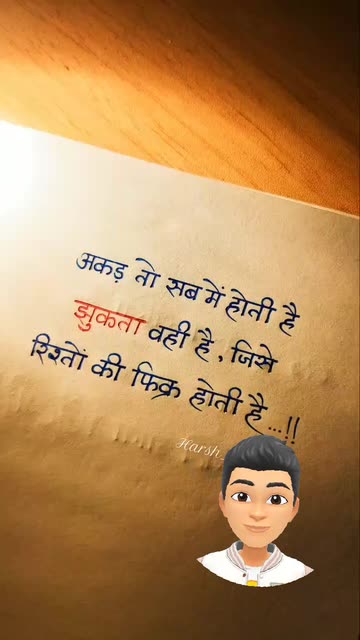 अकड़ तो सब में होती है
झुकता वही है, जिसे
रिश्तों की फिक्र होती है...!!
Harsh